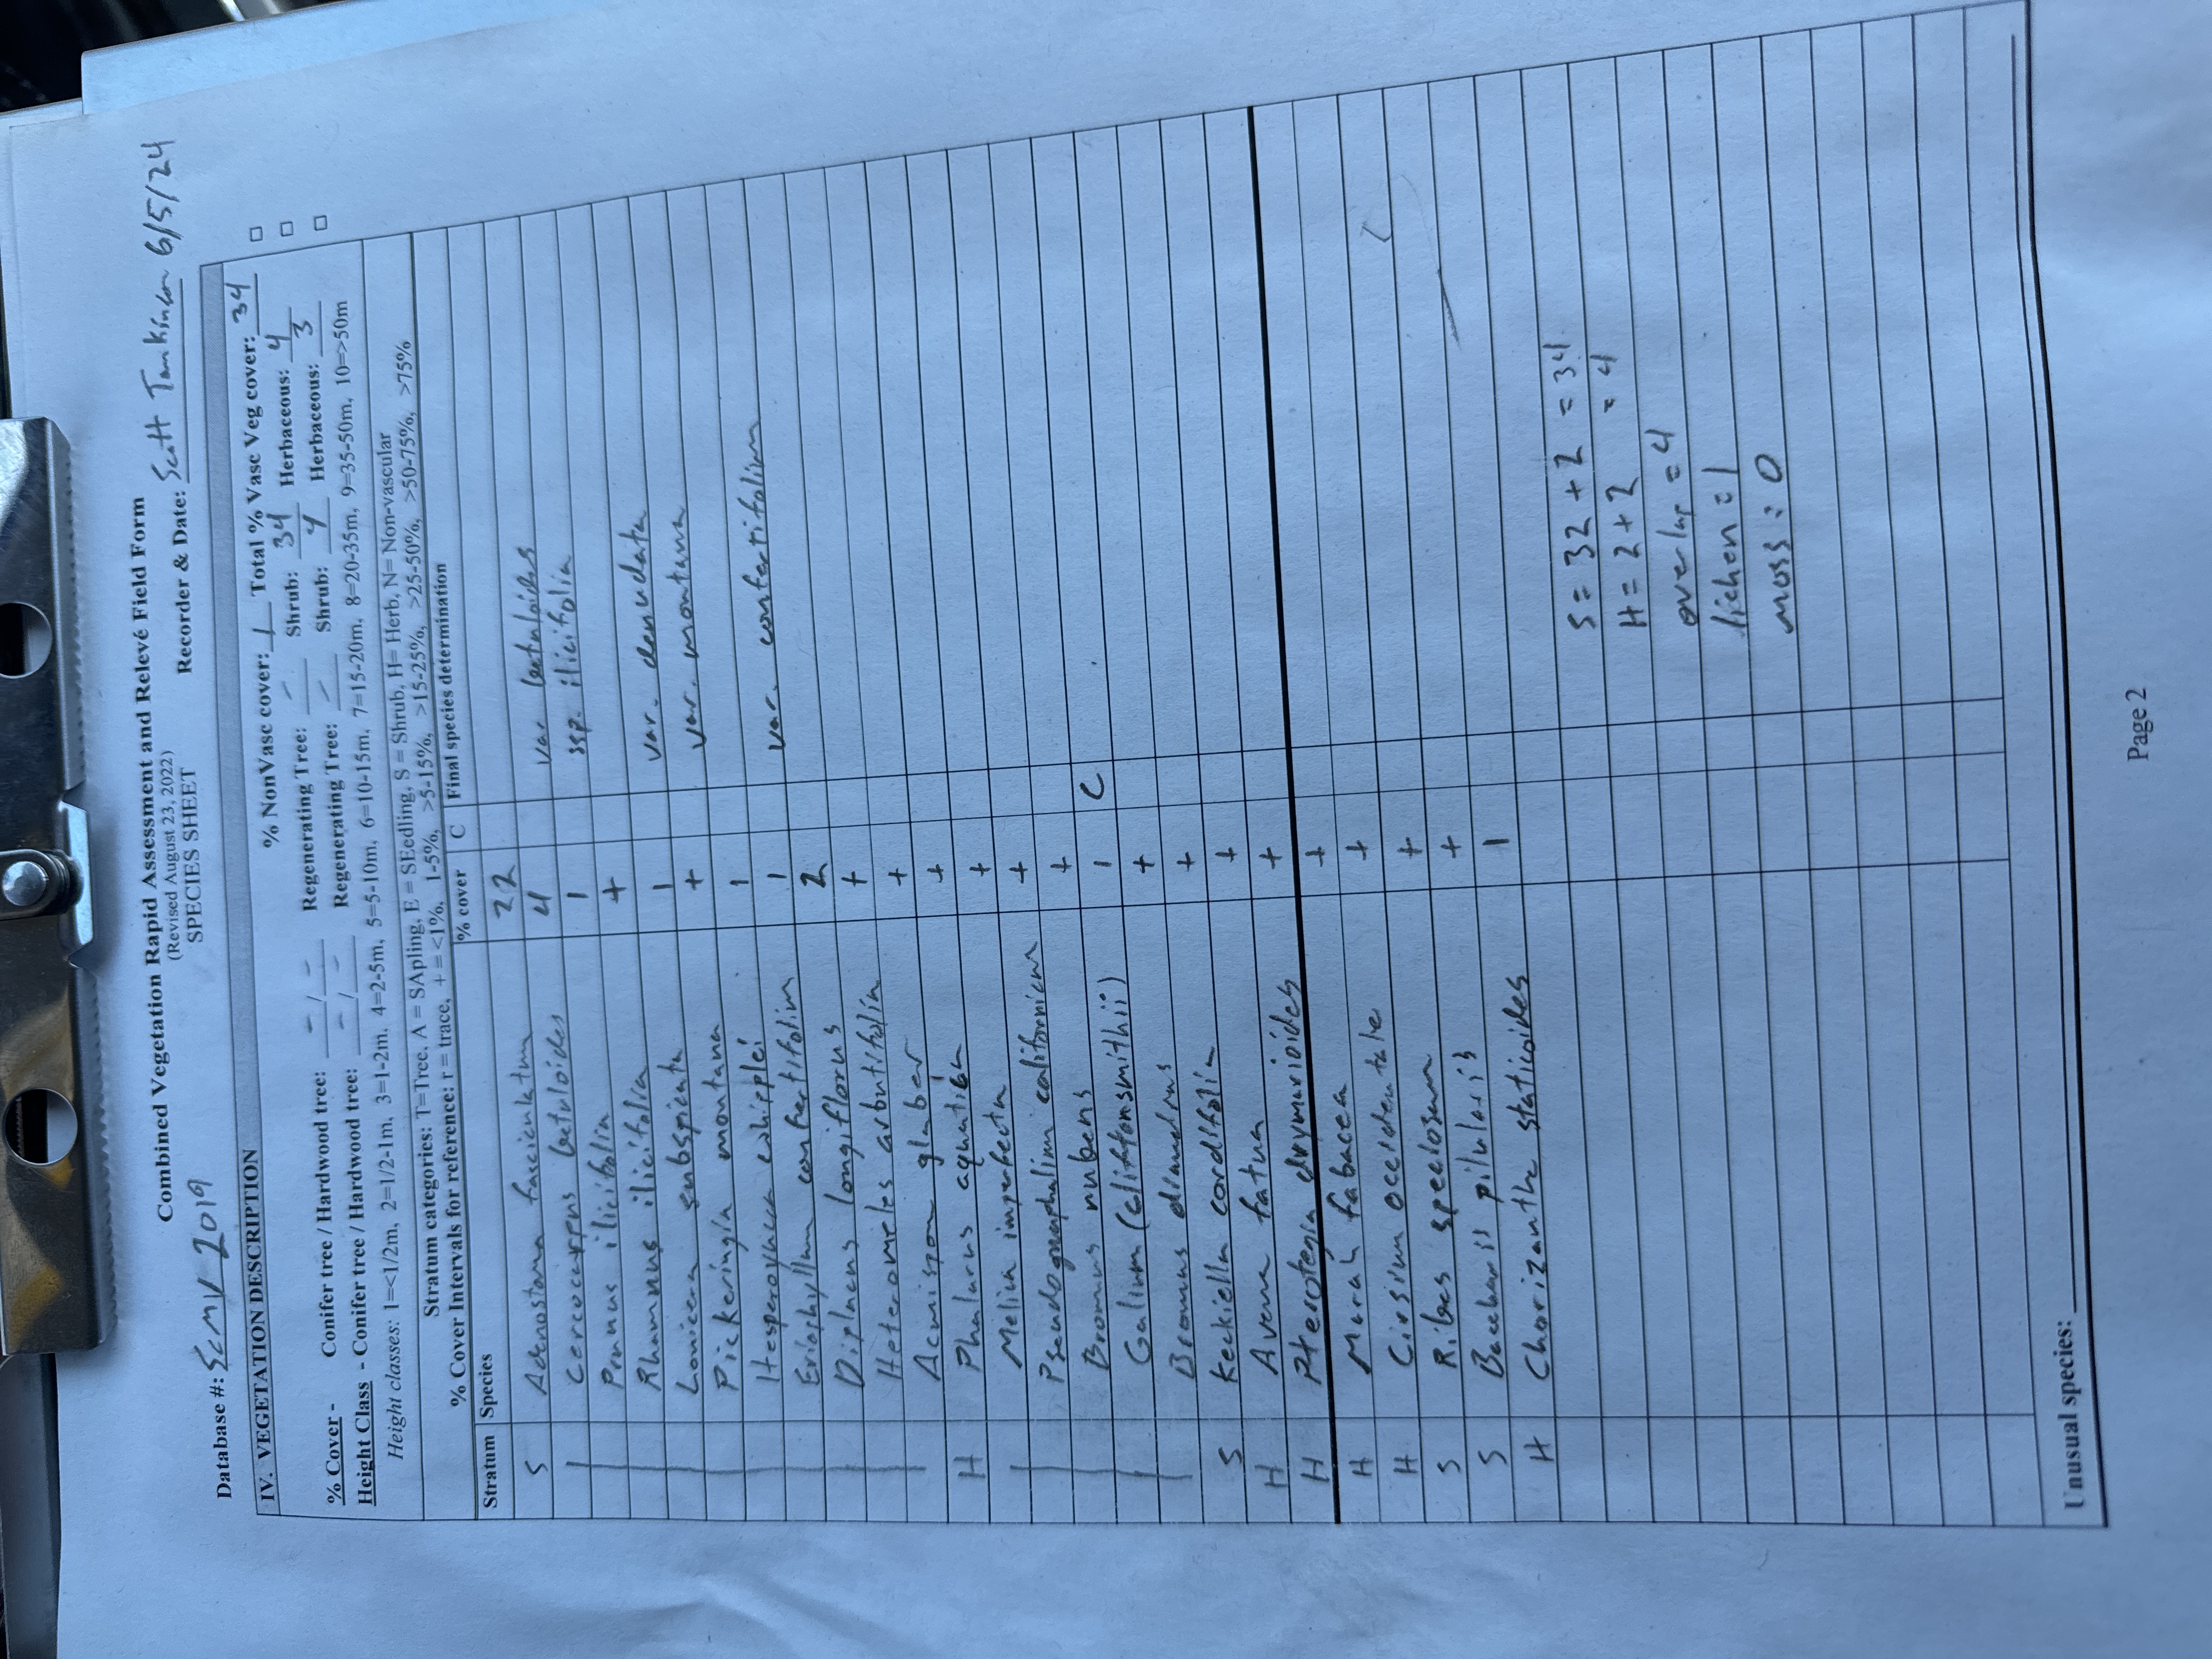 Combined Vegetation Rapid Assessment and Relevé Field Form
(Revised August 23, 2022)
Database #: SCMV 2019 SPECIES SHEET Recorder & Date: Scott 6/5/24
IV. VEGETATION DESCRIPTION
% NonVasc cover: 1 Total % Vasc Veg cover: 34 □
% Cover - Conifer tree / Hardwood tree: - / - Regenerating Tree: - Shrub: 34 Herbaceous: 4 □
Height Class - Conifer tree / Hardwood tree: - / - Regenerating Tree: - Shrub: 4 Herbaceous: 3 □
Height classes: 1=<1/2m, 2=1/2-1m, 3=1-2m, 4=2-5m, 5=5-10m, 6=10-15m, 7=15-20m, 8=20-35m, 9=35-50m, 10=>50m
Stratum categories: T=Tree, A = SApling, E = SEedling, S = Shrub, H= Herb, N= Non-vascular
% Cover Intervals for reference: r = trace, + = <1%, 1-5%, >5-15%, >15-25%, >25-50%, >50-75%, >75%
Stratum Species % cover C Final species determination
S Adenostoma fasciculatum 22
| Cercocarpus betuloides 4 var betuloides
Prunus ilicifolia 1 ssp. ilicifolia
Rhamnus ilicifolia +
Lonicera subspicata 1 var. denudata
Pickeringia montana + var. montana
Hesperoyucca whipplei 1
Eriophyllum confertifolium 1 var. confertifolium
Diplacus longiflorus 2
Heteromeles arbutifolia +
Acmispon glaber +
H Phalarus aquatica +
Melica imperfecta +
Pseudognaphalium californicum +
Bromus rubens +
Galium (cliftonsmithii) 1 C
Bromus diandrus +
S Keckiella cordifolia +
H Avena fatua +
H Pterostegia drymarioides +
H Marah fabacea +
H Cirsium occidentale +
S Ribes speciosum +
S Baccharis pilularis +
H Chorizanthe staticoides 1
S = 32 + 2 = 34
H = 2 + 2 = 4
overlap = 4
lichen = 1
moss = 0
Unusual species:
Page 2